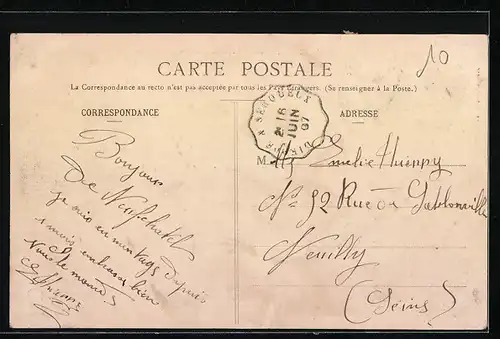 10
CARTE POSTALE
La Correspondance au recto n'est pas acceptée par tous les Pays étrangers. (Se renseigner à la Poste.)
CORRESPONDANCE
ADRESSE
SERQUEUX
16
JUIN
07
Bonjour
De Neufchatel
je suis en mon pays depuis
1 mois embrasse bien
tout le monde
Emelie Thierry
N° 92 Rue de Sablonville
Neuilly
(Seine)